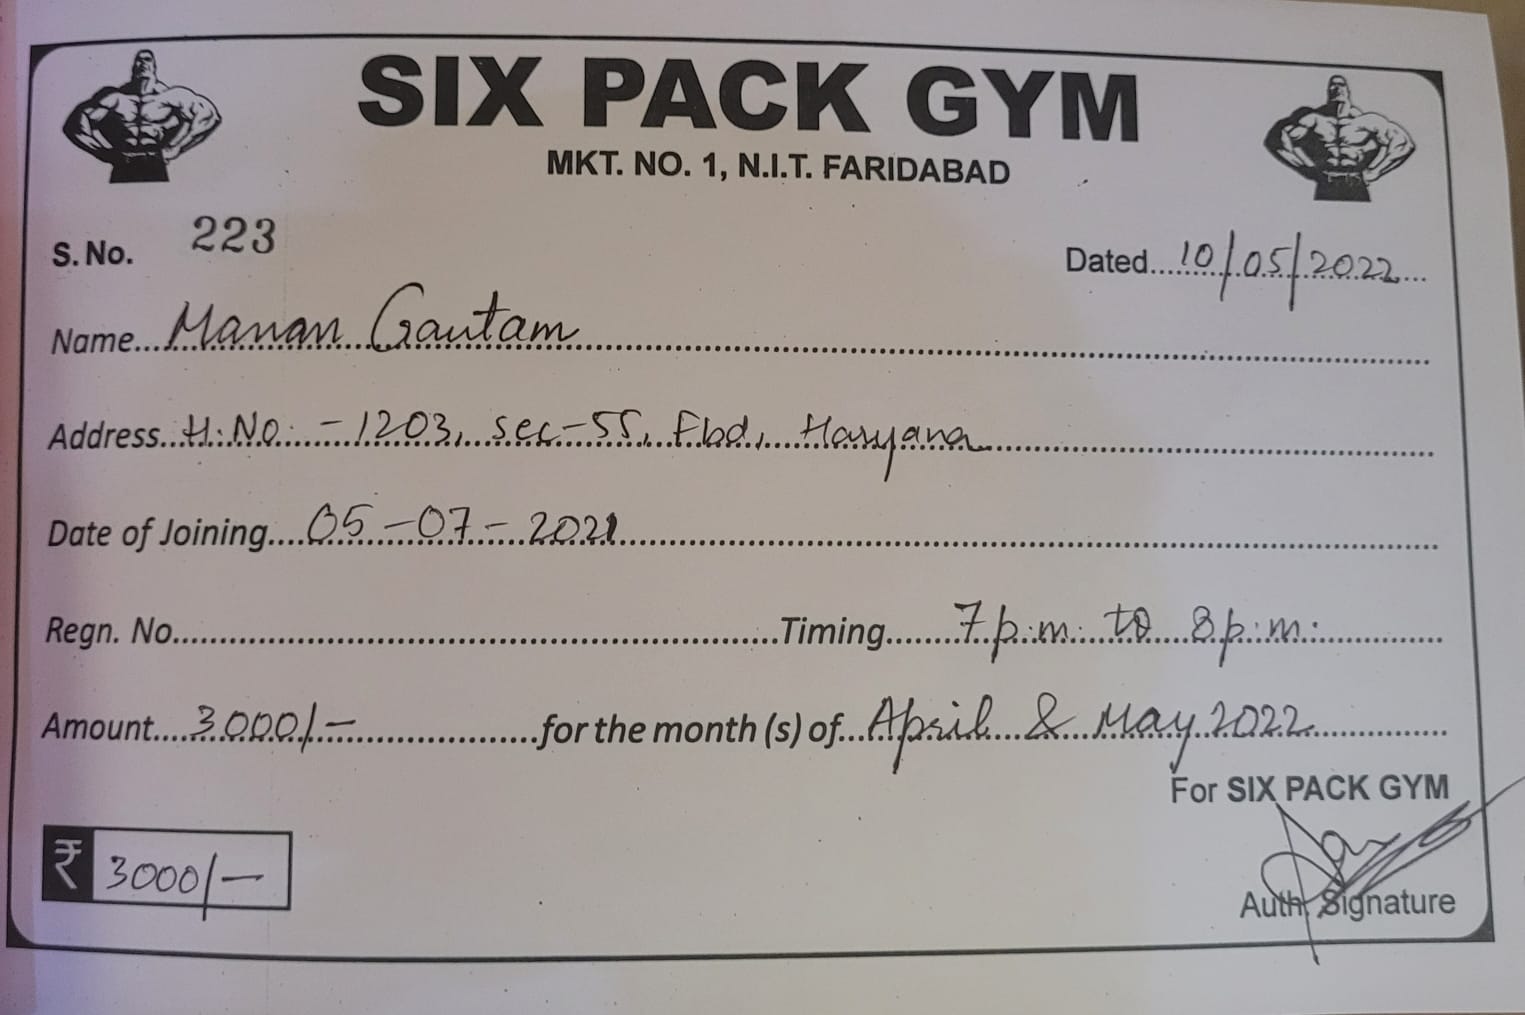 SIX PACK GYM
MKT. NO. 1, N.I.T. FARIDABAD
S. No. 223
Dated....10/05/2022...
Name...Manan Gautam
Address..H.No. -1203, sec-55, Fbd, Haryana
Date of Joining....05-07-2021
Regn. No. Timing 7 p.m. to 8 p.m.
Amount....3000/- for the month (s) of...April & May 2022
For SIX PACK GYM
₹ 3000/-
Auth. Signature